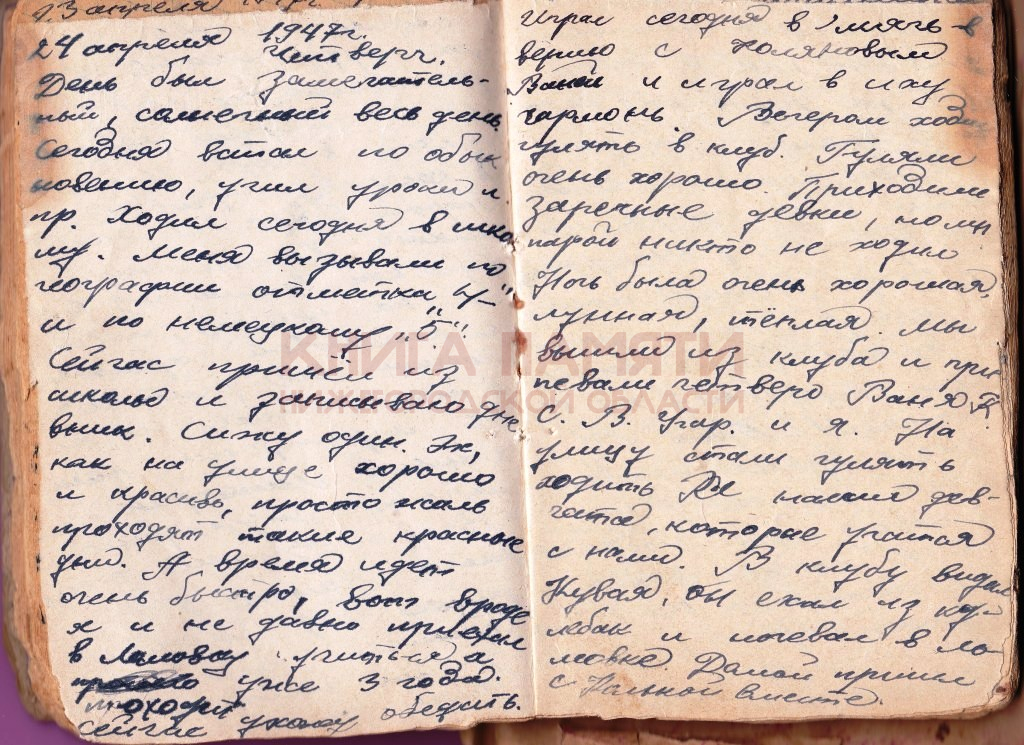 23 апреля
24 апреля 1947г.
Четверг.
День был замечатель-
ный, солнечный весь день.
Сегодня встал по обык
новению, учил уроки и
пр. Ходил сегодня в шко
лу. Меня вызывали по
географии отметка "4"
и по немецкому "5"
Сейчас пришёл из
школы и записываю дне
вник. Сижу один. Эх,
как на улице хорошо
и красиво, просто жаль
проходят такие красные
дни. А время идет
очень быстро, вот вроде
я и не давно приехал
в Ломовку учиться а
уже 3 года.
проходит
Сейчас ухожу обедать.
Играл сегодня сегодня в мяч в
верию с Поляковым
Ваней и играл в иху
гармонь. Вечером ходил
гулять в клуб. Гуляли
очень хорошо. Приходили
заречные девки, но мы
парой никто не ходил
Ночь была очень хорошая,
лунная, тёплая. Мы
вышли из клуба и при
певали четверо Ваня К
С. В. Угар. и я. На
улицу стали гулять
ходить наши дев-
чата, которые учатся
с нами. В клубу видел
он ехал из Ку-
лебак и ночевал в Ло
мовке. Домой пришли
с вместе.
КНИГА ПАМЯТИ
НИЖЕГОРОДСКОЙ ОБЛАСТИ